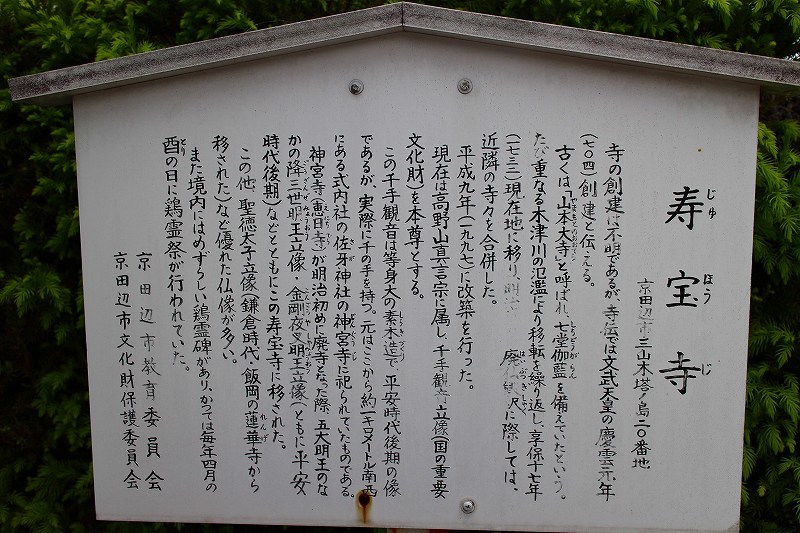 寿宝寺
じゅほうじ
京田辺市三山木塔ノ島二〇番地
寺の創建は不明であるが、寺伝では文武天皇の慶雲元年
(七〇四)創建と伝える。
古くは「山本大寺」と呼ばれ、七堂伽藍を備えていたという。
たび重なる木津川の氾濫により移転を繰り返し、享保十七年
(一七三二)現在地に移り、明治 廃仏毀釈に際しては、
近隣の寺々を合併した。
平成九年(一九九七)に改築を行った。
現在は高野山真言宗に属し、千手観音立像(国の重要
文化財)を本尊とする。
この千手観音は等身大の素木造で、平安時代後期の像
であるが、実際に千の手を持つ。元はここから約一キロメートル南西
にある式内社の佐牙神社の神宮寺に祀られていたものである。
神宮寺(恵日寺)が明治初めに廃寺となった際、五大明王のな
かの降三世明王立像・金剛夜叉明王立像(ともに平安
時代後期)などとともにこの寿宝寺に移された。
この他、聖徳太子立像(鎌倉時代、飯岡の蓮華寺から
移された)など優れた仏像が多い。
また境内にはめずらしい鶏霊碑があり、かつては毎年四月の
酉の日に鶏霊祭が行われていた。
京田辺市教育委員会
京田辺市文化財保護委員会